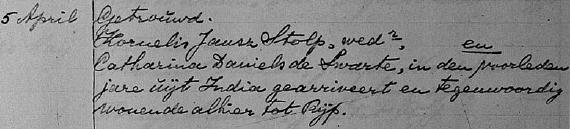 5 April Getrouwd.
Chornelis Jansz Stolp, wedr, en
Catharina Daniels de Swarte, in den voorleden
jare uijt India gearriveert en tegenwoordig
wonende alhier tot Rijp.